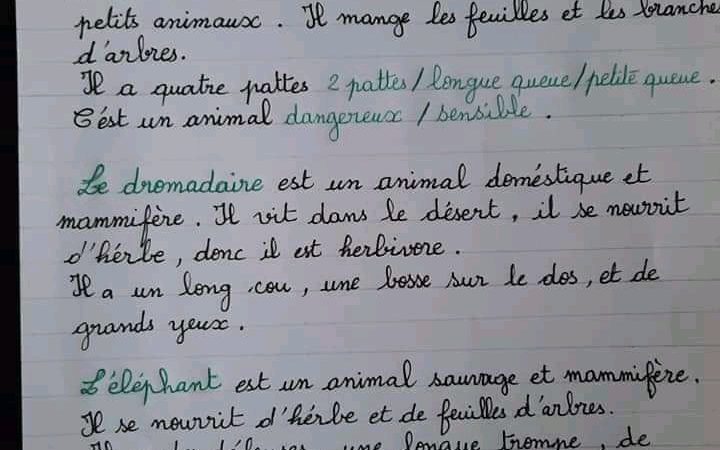 petits animaux . Il mange les feuilles et les branches
d'arbres.
Il a quatre pattes 2 pattes / longue queue / petite queue .
C'ést un animal dangereux / sensible .
Le dromadaire est un animal doméstique et
mammifère . Il vit dans le désert , il se nourrit
d'hérbe , donc il est herbivore .
Il a un long cou , une bosse sur le dos , et de
grands yeux .
L'éléphant est un animal sauvage et mammifère .
Il se nourrit d'hérbe et de feuilles d'arbres.
Il défenses , une longue trompe , de